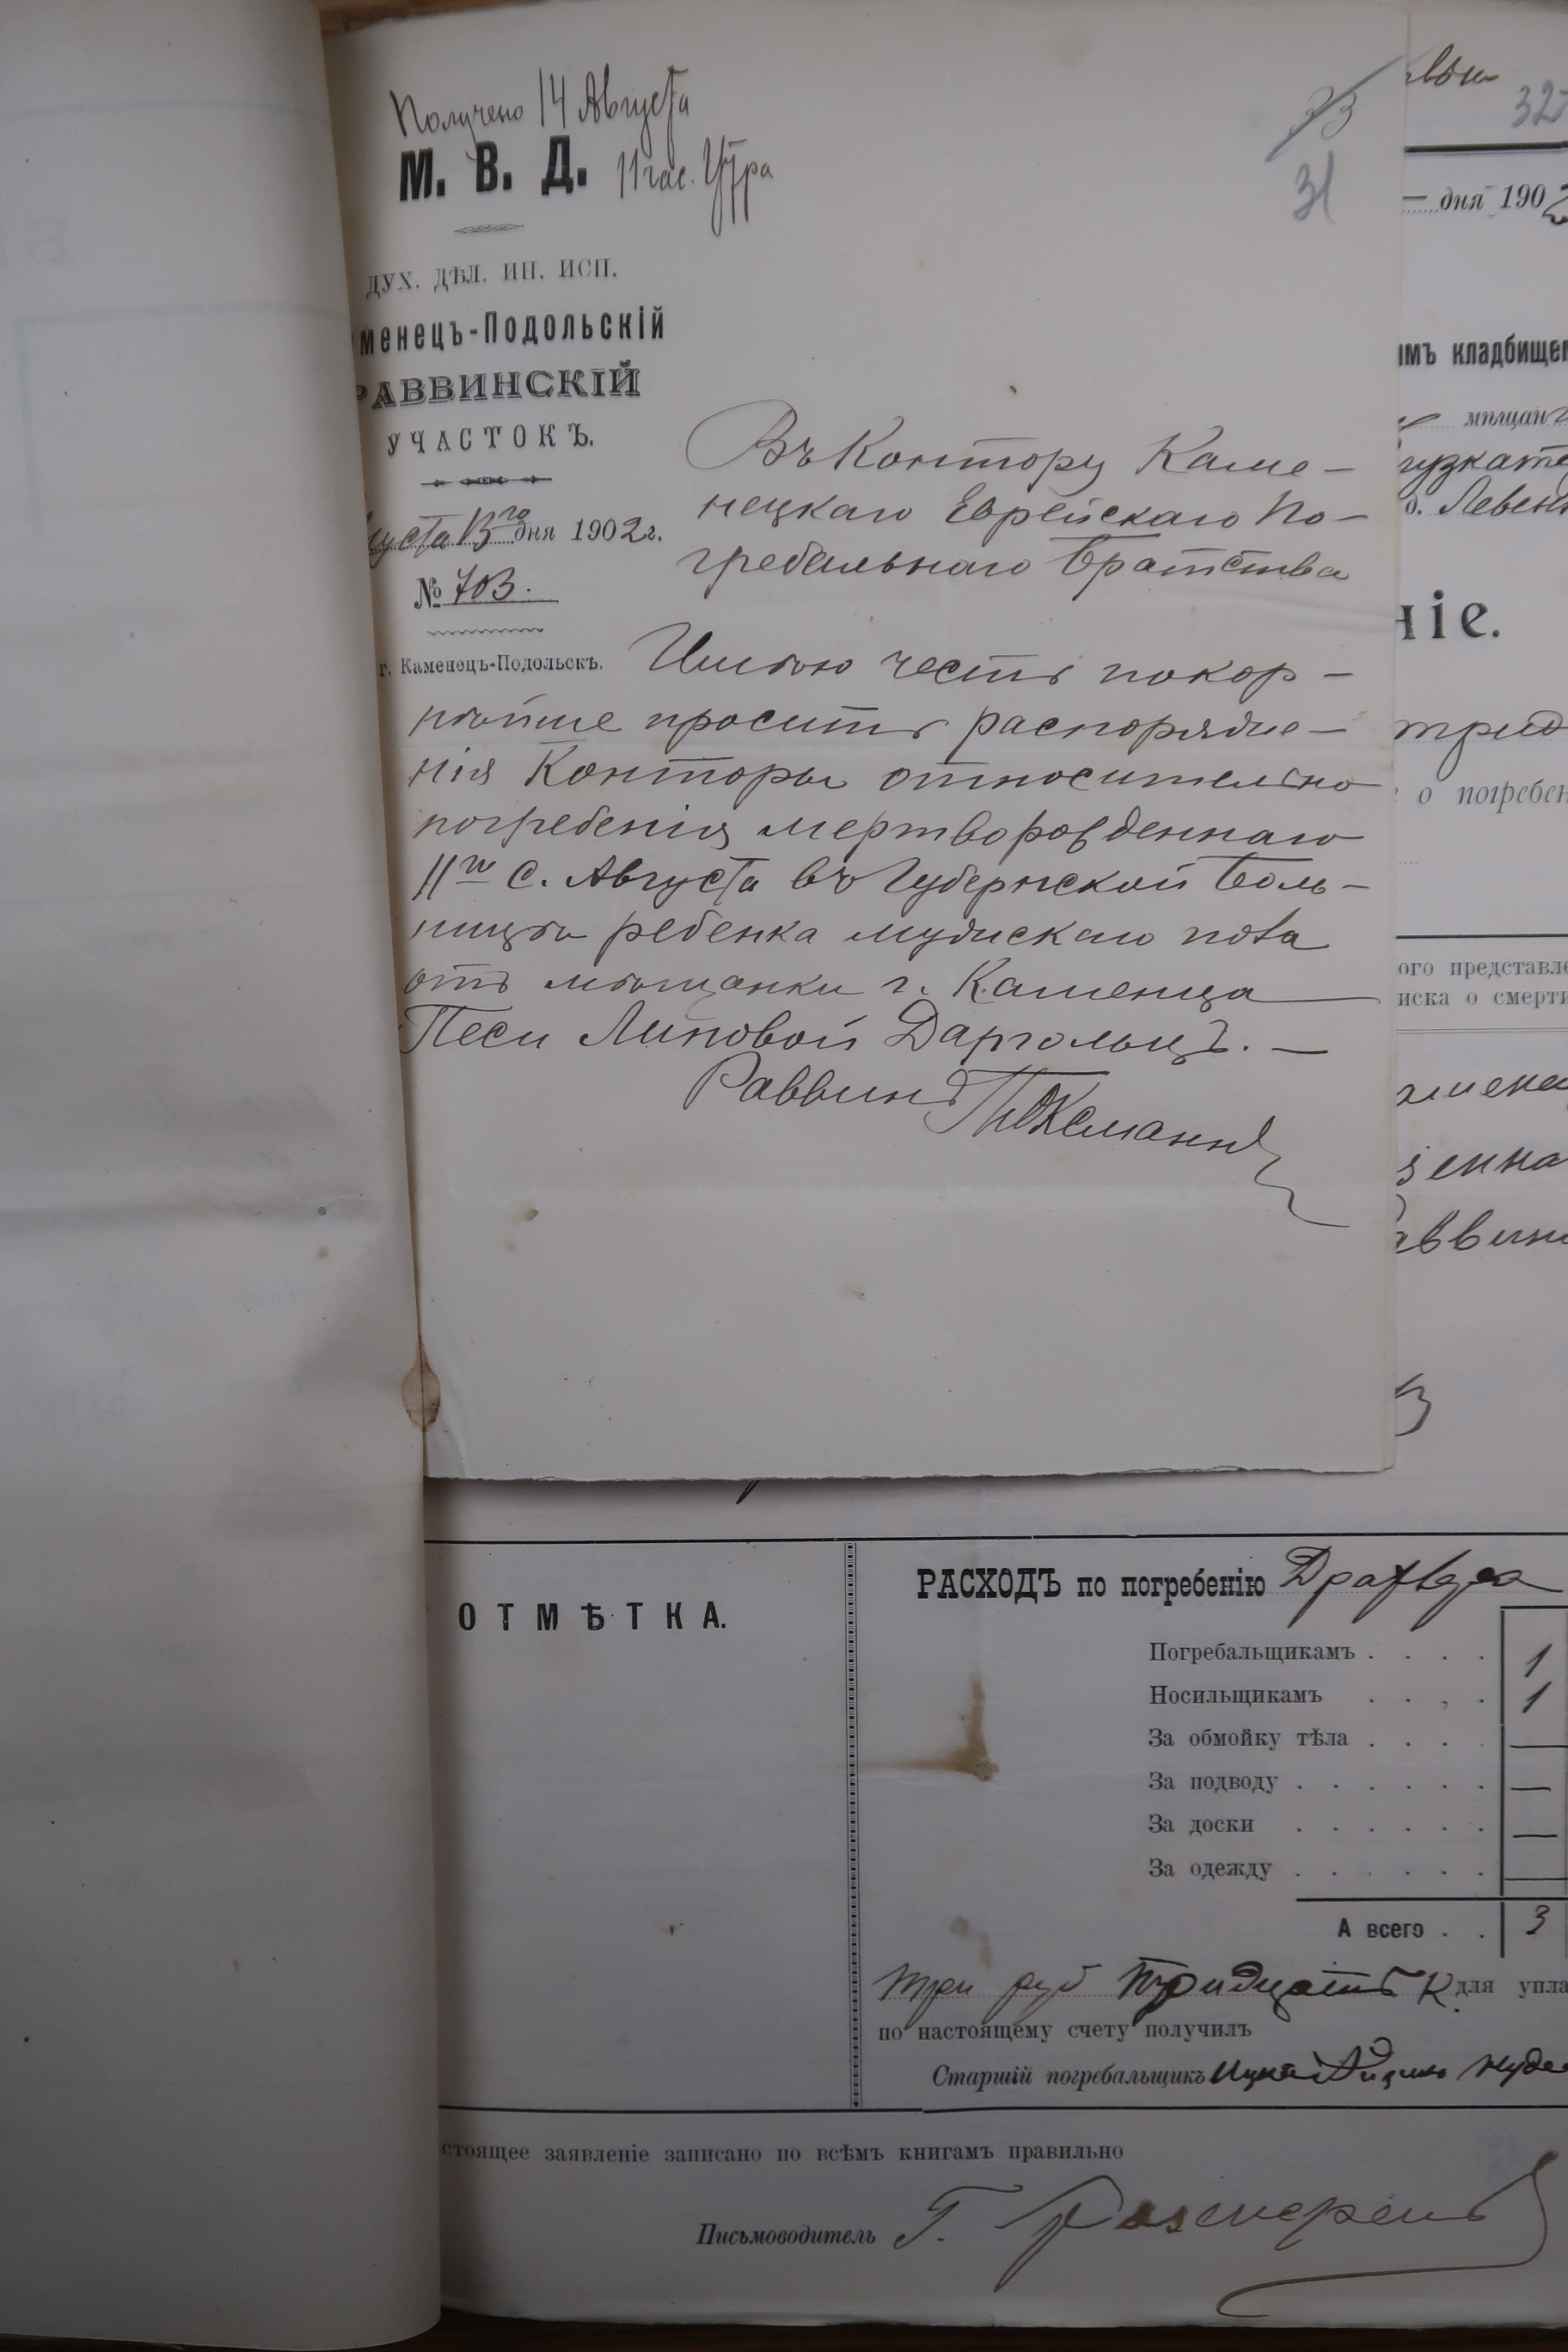 Получено 14 Августа
М. В. Д. 11 час. Утра
33
31
ДУХ. ДѢЛ. ИН. ИСП.
менецъ-Подольскій
РАВВИНСКІЙ
УЧАСТОКЪ.
уста 13го дня 1902 г.
№ 703.
г. Каменецъ-Подольскъ.
Въ Контору Каме-
нецкаго Еврейскаго По-
гребальнаго Братства
Имѣю честь покор-
нѣйше просить распоряже-
нія Конторы относительно
погребенія мертворожденнаго
11го с. Августа въ Губернской Боль-
ницѣ ребенка мужскаго пола
отъ мѣщанки г. Каменца
Песи Липовой Даргольцъ. —
Раввинъ
32
дня 1902
имъ кладбищем
мѣщан
о. Левен
ніе.
о погребен
ого представле
иска о смерти
аввин
ОТМѢТКА.
РАСХОДЪ по погребенію
Погребальщикамъ . . . . 1
Носильщикамъ . . . . 1
За обмойку тѣла . . . . —
За подводу . . . . . . —
За доски . . . . . . —
За одежду . . . . . . —
А всего . . 3
три руб тридцать к. для упла
по настоящему счету получилъ
Старшій погребальщикъ
стоящее заявленіе записано по всѣмъ книгамъ правильно
Письмоводитель Г.